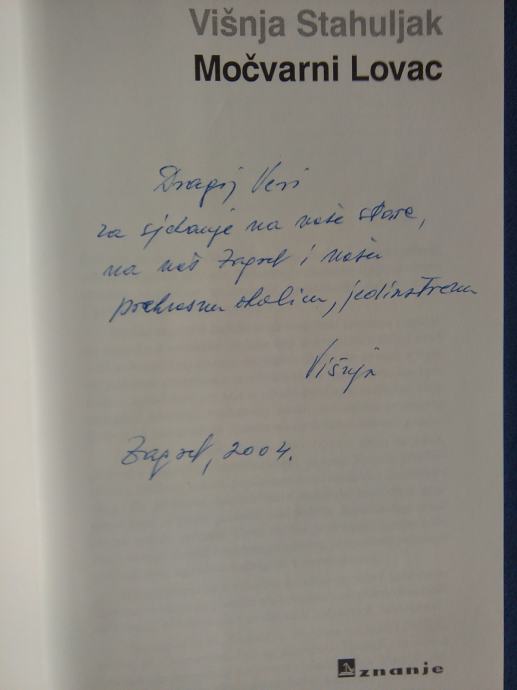 Višnja Stahuljak
Močvarni Lovac
Dragoj Veri
za sjećanje na naše stare,
na naš Zagreb i našu
prekrasnu okolicu, jedinstvenu
Višnja
Zagreb, 2004.
znanje